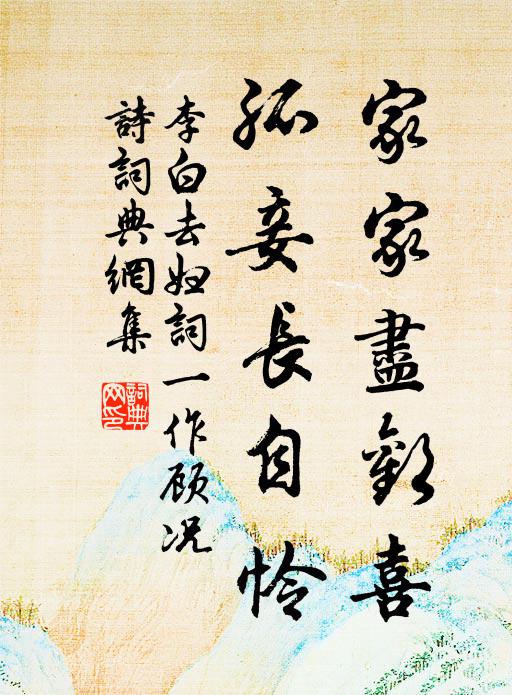 家家盡歡喜
孤妾長自怜
李白去婦詞一作顾况
詩詞典網集
詞典網印